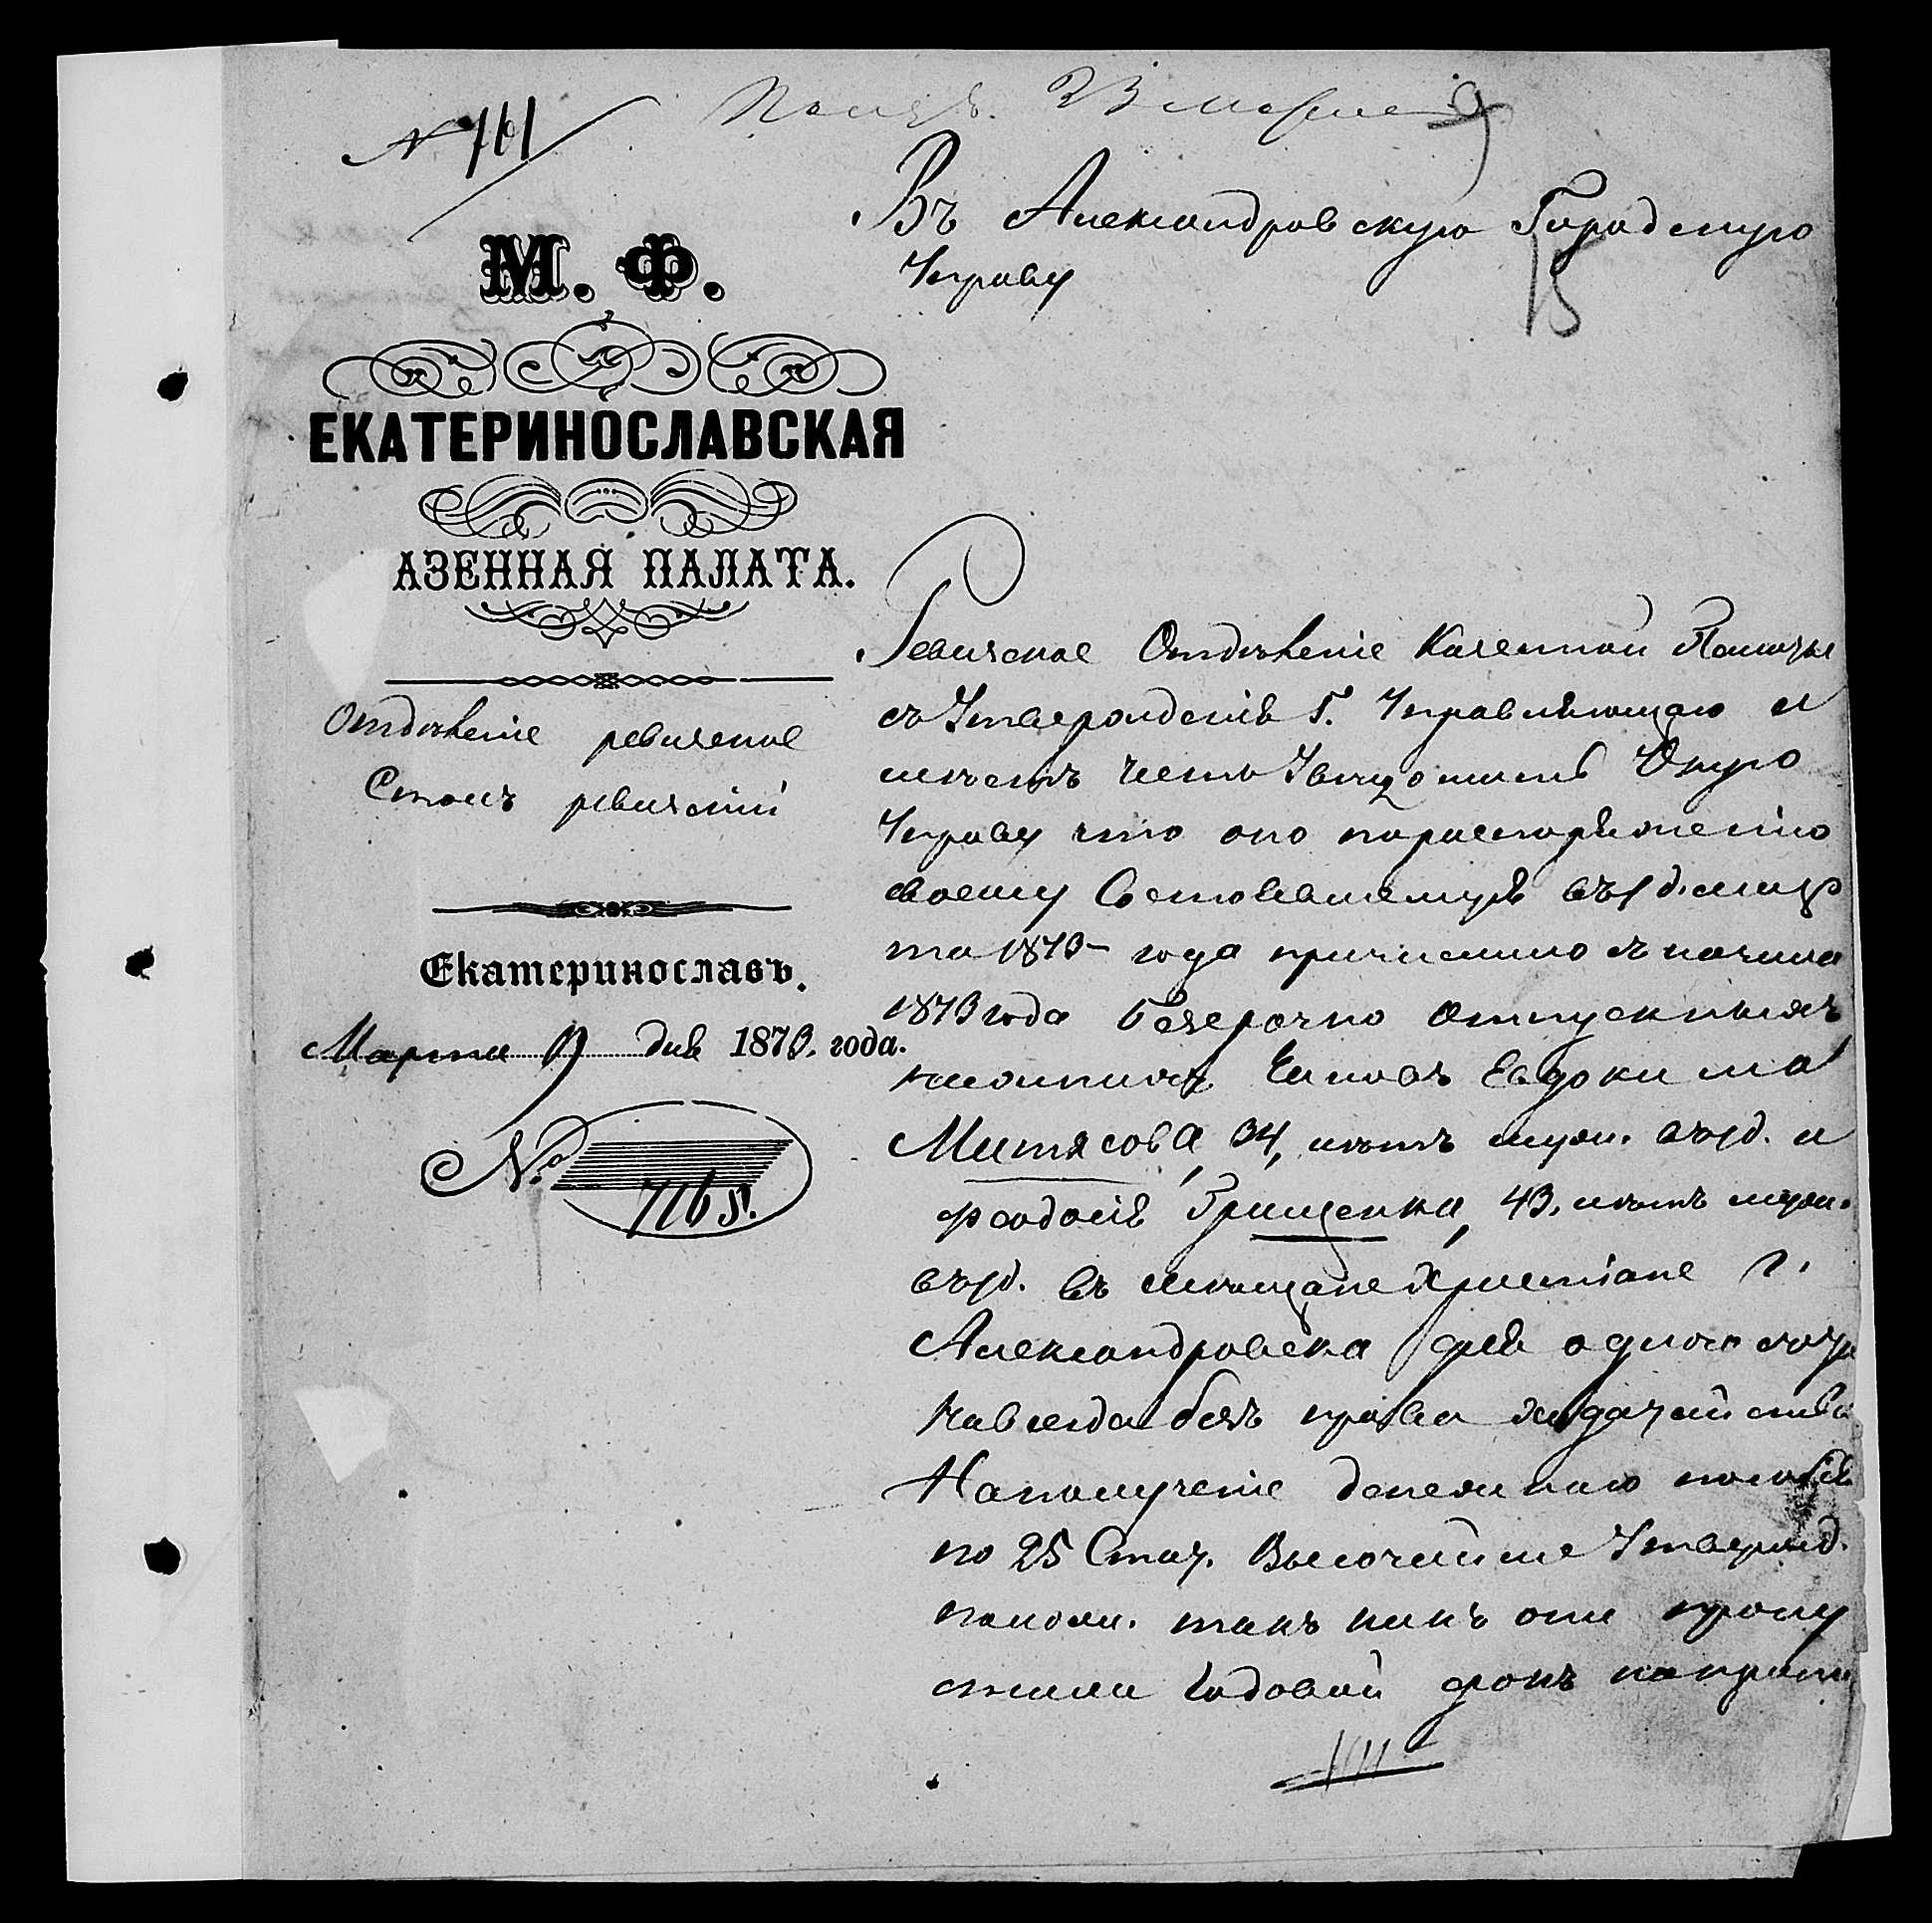 № 761
Получ. 23 марта
9
Въ Александровскую Городскую
Управу
15
М. Ф.
ЕКАТЕРИНОСЛАВСКАЯ
АЗЕННАЯ ПАЛАТА.
Отдѣленіе ревизское
Столъ ревизскій
Екатеринославъ.
Марта 9 дня 1873. года.
№ 7165.
Ревизское Отдѣленіе Казенной Палаты
съ Утвержденія Г. Управляющаго и
мѣетъ честь Увѣдомить Оную
Управу что оно пораспоряженію
своему Состоявшемуся въ д. мар
та 1873 года причислило съ начала
1873 года безсрочно отпускныхъ
нижнихъ Чиновъ Евдокима
Митясова, 34, лѣтъ муж. въ д. и
Феодосія Грищенка, 43, лѣтъ муж.
въ д. въ мѣщане Христіане г.
Александровска для одного счета
навсегда безъ права ходатайства
На полученіе денежнаго пособія
по 25 Стат. Высочайше Утвержд.
полож. такъ какъ они пропу
стили годовой срокъ на